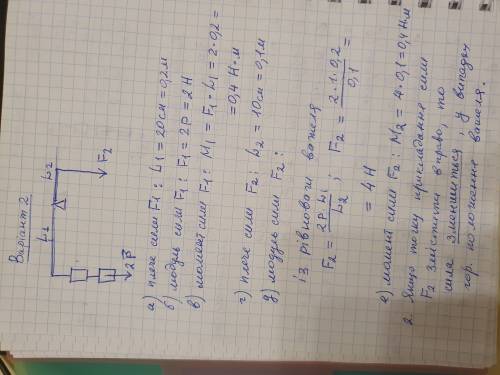 Варіант 2
L₁ L₂
F₂
2P
а) плече сили F₁: L₁ = 20см = 0,2м
б) модуль сили F₁: F₁ = 2P = 2Н
в) момент сили F₁: M₁ = F₁·L₁ = 2·0,2 =
= 0,4 Н·м
г) плече сили F₂: L₂ = 10см = 0,1м
д) модуль сили F₂:
із рівноваги важеля
F₂ = 2P L₁ / L₂ ; F₂ = 2·1·0,2 / 0,1 =
= 4Н
е) момент сили F₂: M₂ = 4·0,1 = 0,4Н·м
2. Якщо точку прикладання сили
F₂ змістити вправо, то
сила зменшиться, у випадку
гор. положення важеля.